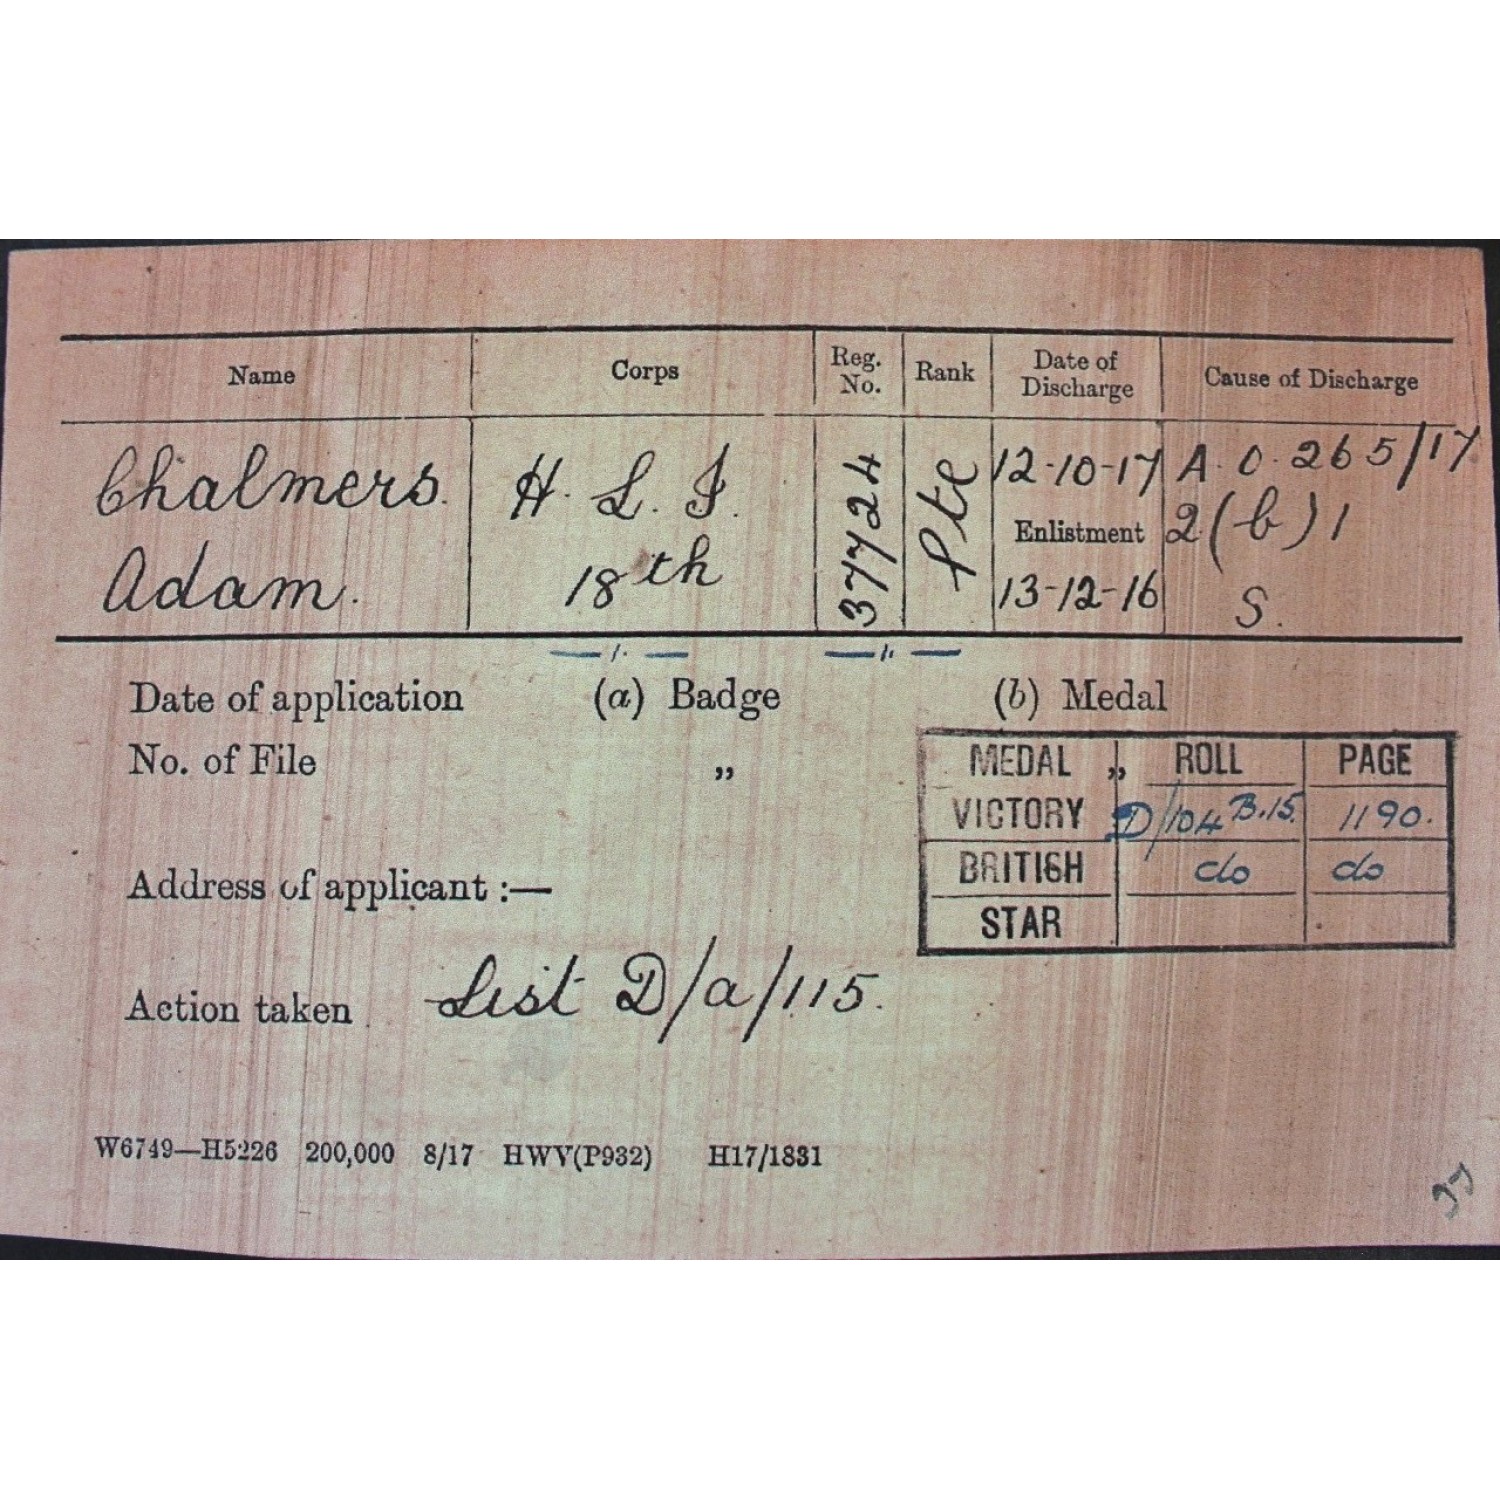 Name Corps Reg. No. Rank Date of Discharge Cause of Discharge
Chalmers. H. L. I. 37724 Pte 12-10-17 A. O. 265/17
Enlistment 2(b)1
Adam. 18th 13-12-16 S.
Date of application (a) Badge (b) Medal
No. of File „ „
MEDAL ROLL PAGE
VICTORY D/104 B.15. 1190.
BRITISH do do
STAR
Address of applicant :—
Action taken List D/a/115.
W6749—H5226 200,000 8/17 HWV(P932) H17/1831